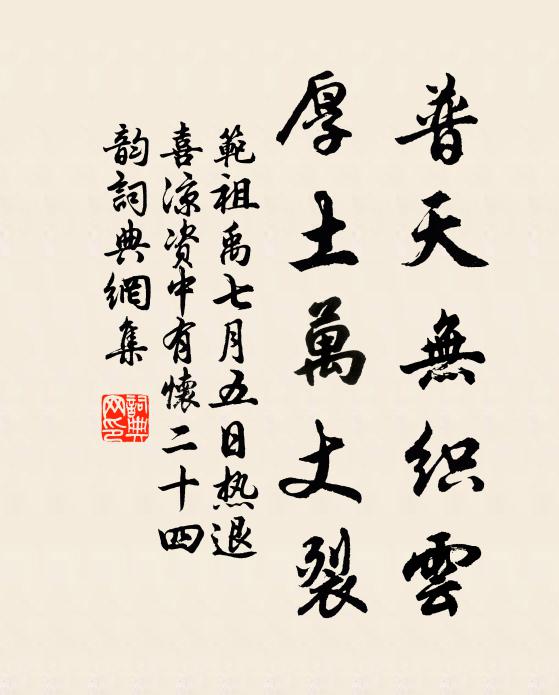 普天無织雲
厚土萬丈裂
範祖禹七月五日热退
喜凉资中有懷二十四
韵詞典網集
詞典
网印